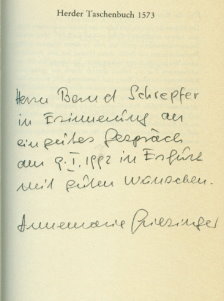 Herder Taschenbuch 1573
Herrn Bernd Schrepfer
in Erinnerung an
ein gutes Gespräch
am 9.I.1992 in Erfurt
mit guten Wünschen.
Annemarie Griesinger